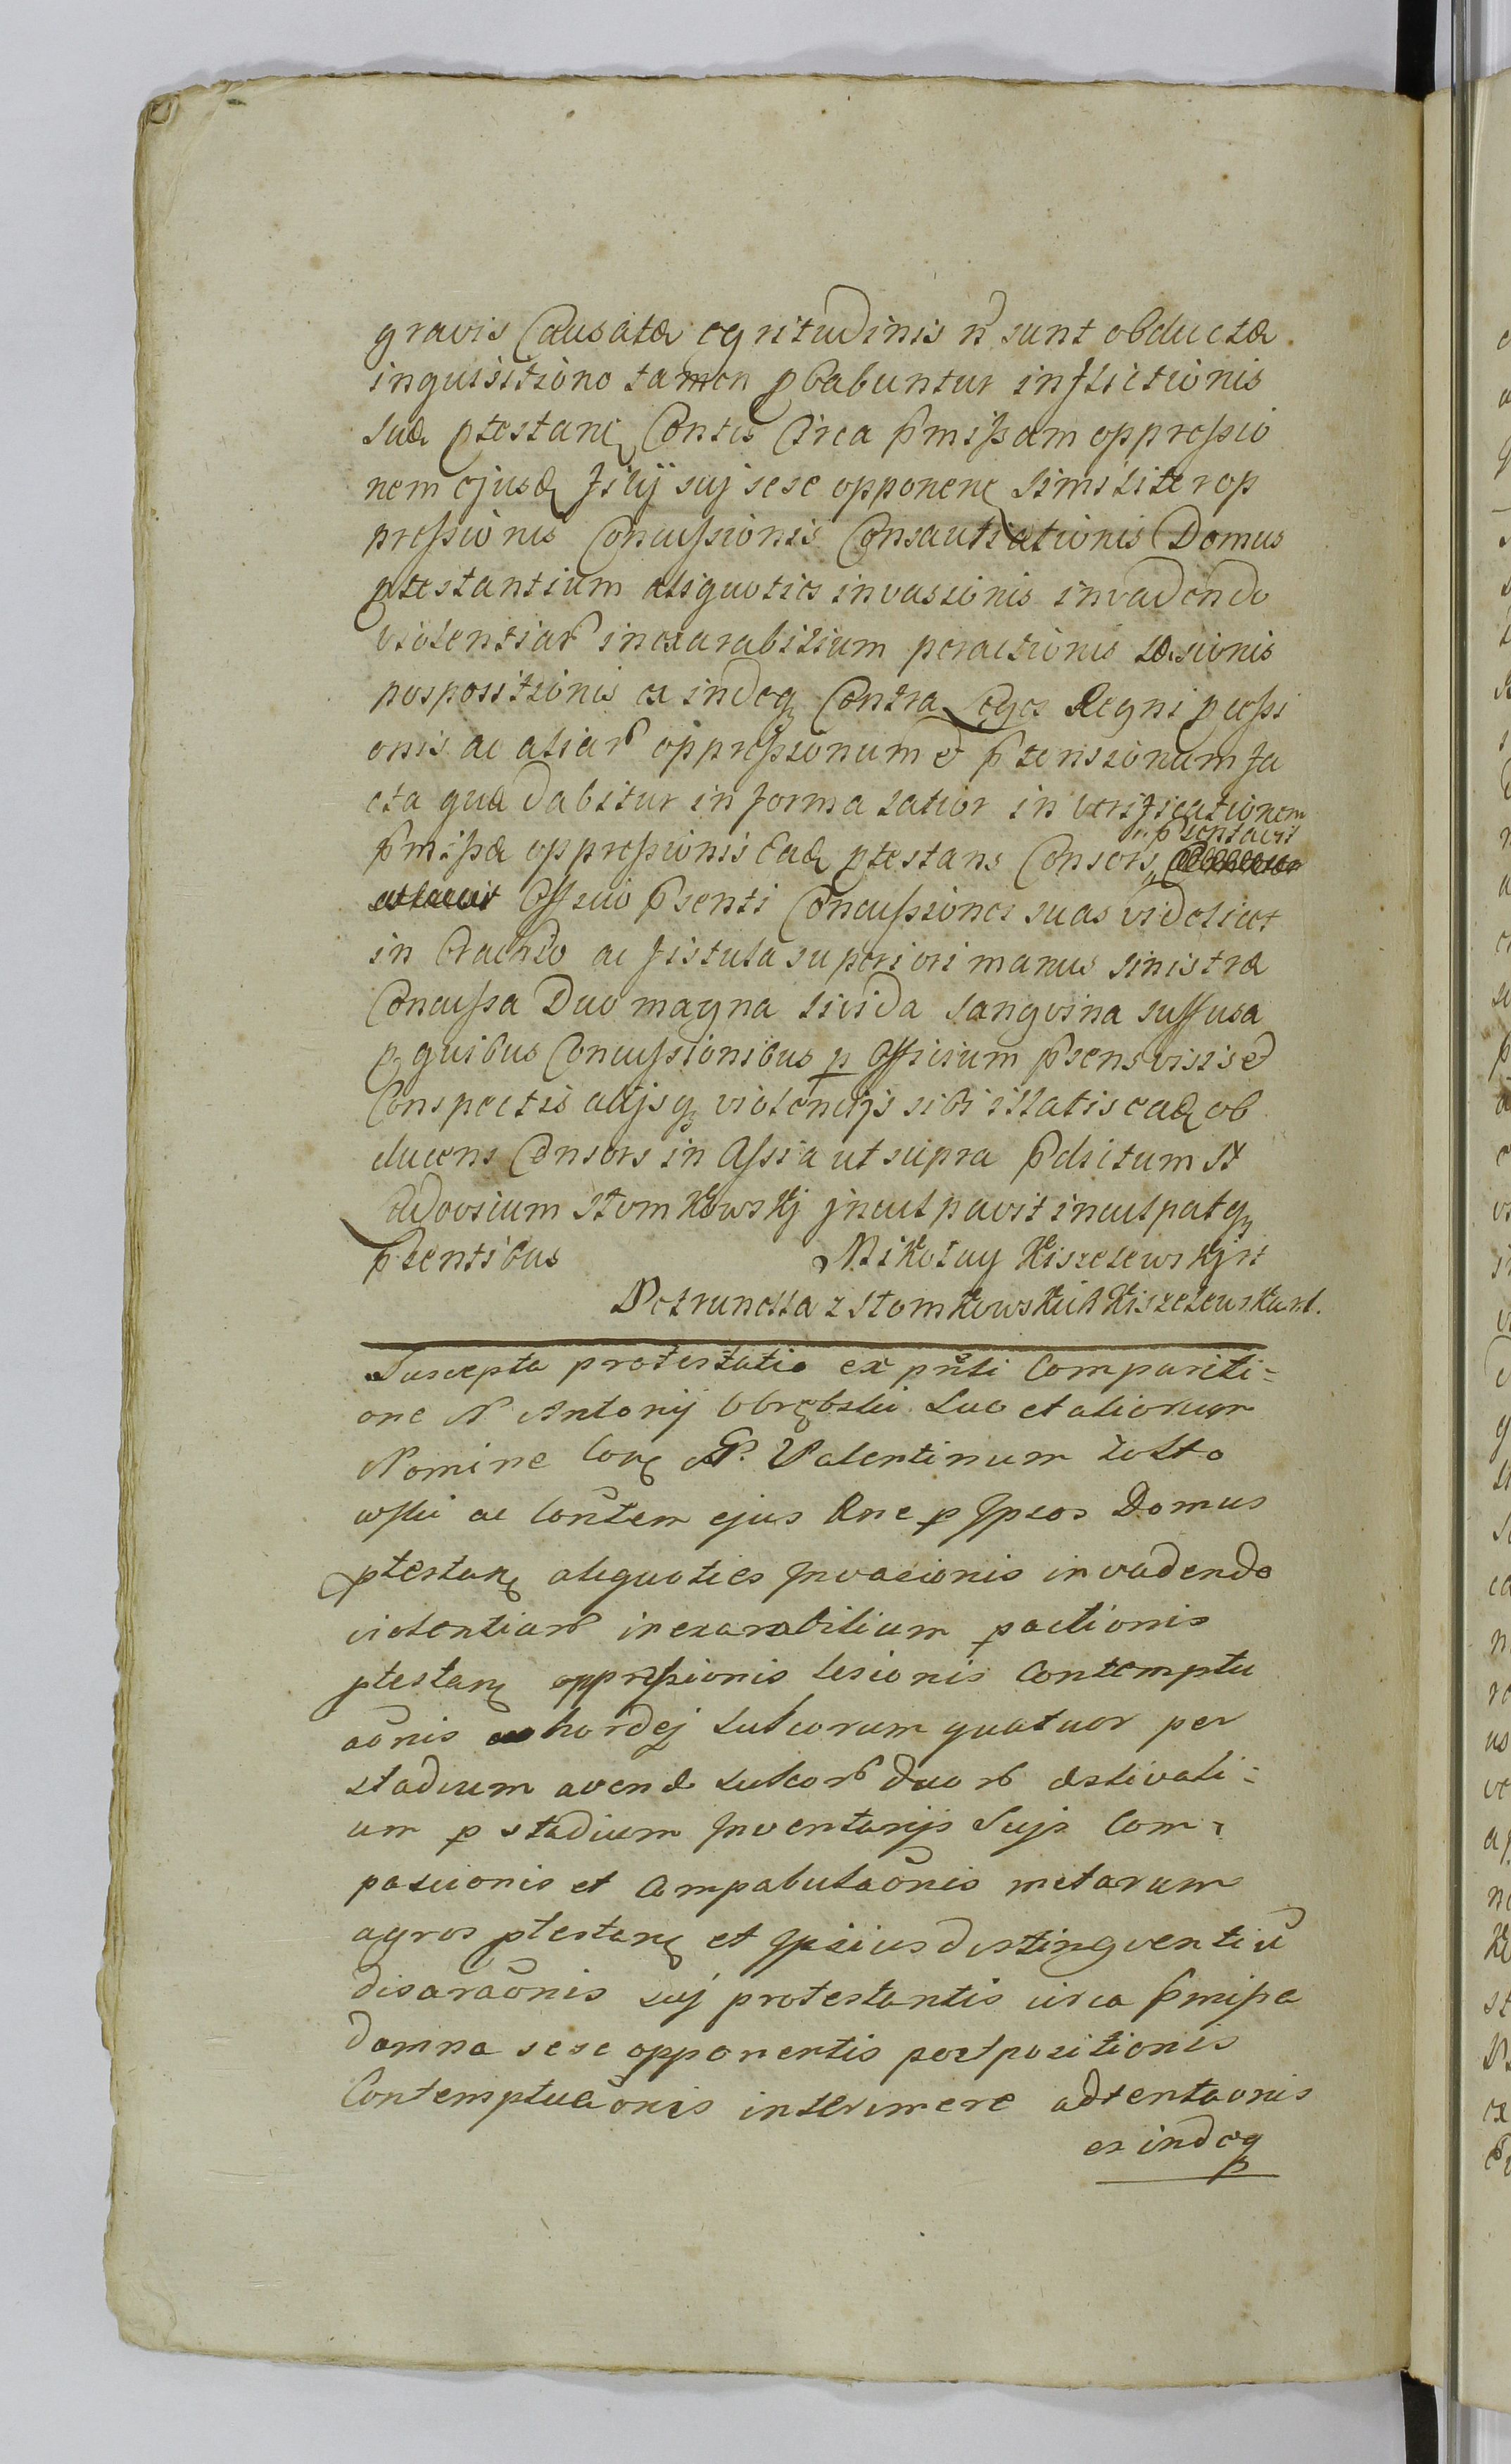 gravis Causatæ egritudinis n̄ sunt obductæ
inquisitione tamen pbabuntur inflictionis
suæ ptestanţ Contis Circa p̄missam oppressio
nem ejusdę filij suj sese opponenţ similiter op
pressionis Concussionis Consautiationis Domus
ptestantium aliquoties invasionis invadendo
violentiar̄ inexarabilium peractionis Læsionis
pospositionis ex indeq₃ Contra Leges Regni pcessi
onis ac aliar̄ oppressionum et p̄tensionum fa
cta quæ dabitur in forma Latior in verificationem
p̄missæ oppressionis Eadę ptestans Consors p̄sentavit
Offcio p̄senti Concussiones suas videlicet
in Brachio ac fistula superiori manus sinistræ
Concussa Duo magna livida sangvina suffusa
p quibus Concussionibus p Officium p̄sens visis et
Conspectis alijsq₃ violentijs sibi illatis eadę ob
ducens Consors in Assia ut supra p̄dictum N
Adovsium Stomkowskj jnculpavit inculpatq₃
p̄sentibus Mikołay Kiszelewskj n
Petrunella z Stomkowskich Kiszelewska nl.
Suscepta protestatio ex pn̄ti Compariti=
one N Antonij Obrębski Suo et aliorum
Nomine Corę N. Valentinum Zołto
wski ac Con̄tem ejus Rne p Jpsos Domus
ptestanţ aliquoties Jnvasionis invadendo
violentiar̄ inexarabilium pactionis
ptestanţ oppressionis lesionis Contemptu
aōnis hordej Sulcorum quatuor per
stadium avenæ Sulcor̄ duor̄ æstivali=
um p stadium Jnventarijs Sujs Com=
pascionis et Compabulaōnis metarum
agros ptestanţ et Jpsius distingventiū
disaraōnis suj protestantis circa p̄missa
damna sese opponentis postpositionis
Contemptuaōnis interimere adtentaonis
ex indeq